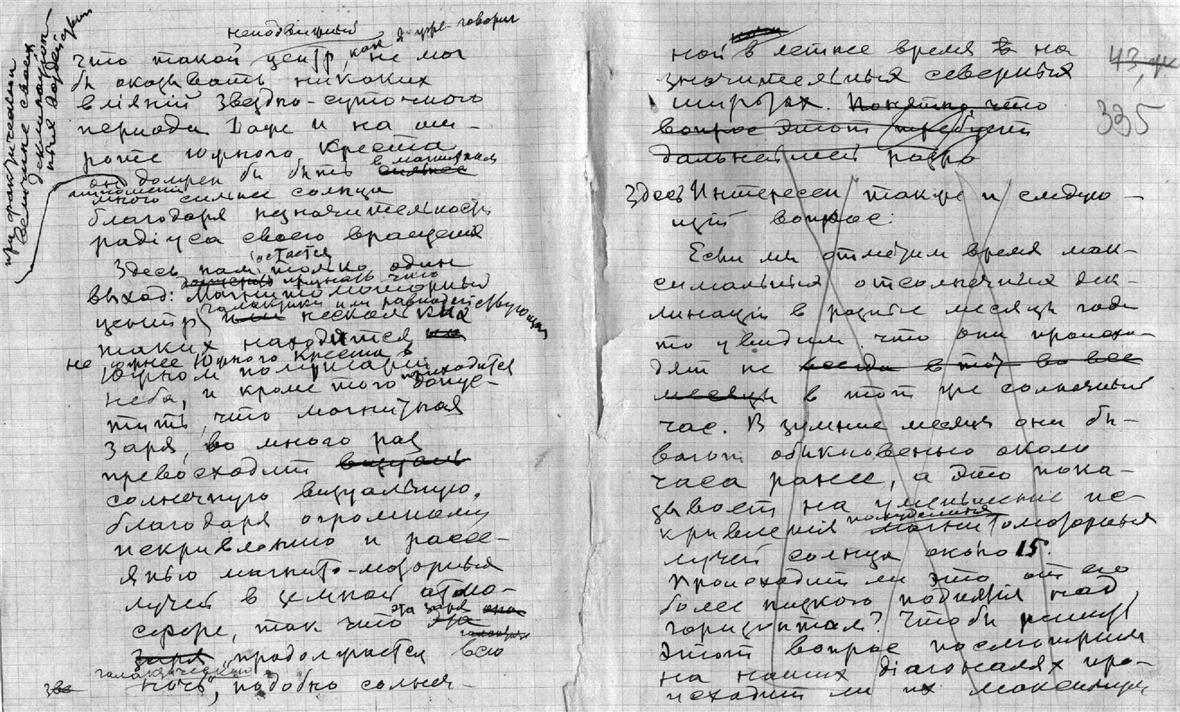 неподвижный
что такой центр, как я уже говорил, не мог
бы оказывать никаких
влияний звездно-суточного
периода Даже и на ши-
роте Южного Креста
он должен бы быть в магнитном
отношении
много сильнее солнца
благодаря незначительности
радіуса своего вращения
Здесь нам остается только один
выход: признать что Магнитомоторный
центр галактики или равнодействующая
нескольких
таких находится
не южнее Южного Креста в
Южном полушарии
неба, и кроме того приходится допус-
тить, что магнитная
заря, во много раз
превосходит
солнечную визуальную,
благодаря огромному
искривлению и рассе-
янью магнито-моторных
лучей в земной атмо-
сфере, так что эта заря
заря „продолжается всю
галактическую
ночь", подобно солнеч-
при фактической
величине своих
ной в летнее время на
значительных северных
широтах. Понятно, что
вопрос этот требует
дальнейшей разра
43
335
Здесь Интересен также и следую-
щий вопрос:
Если мы отметим время мак-
симальных отсолнечных дек-
линаций в разные месяцы года
то увидим что они происхо-
дят не всегда в
месяцы в тот же солнечный
час. В зимние месяцы они бы-
вают обыкновенно около
часа ранее, а это пока-
зывает на уменьшение ис-
кривления магнитомоторных
лучей солнца около 15°.
Происходит ли это от его
более низкого поднятия над
горизонтом? Чтобы решить
этот вопрос посмотрим
на наших діагоналях про-
исходит ли их максимум